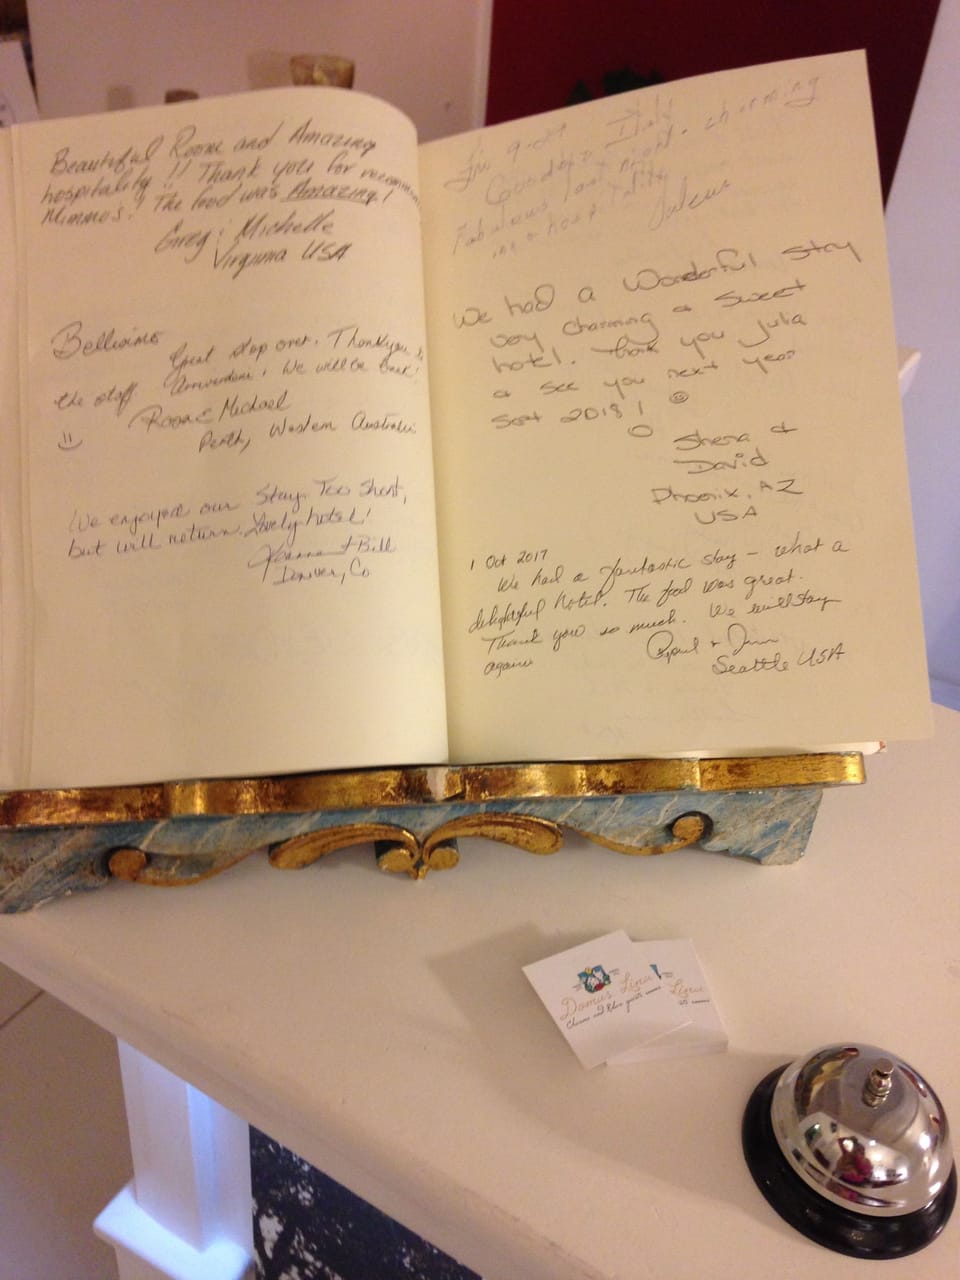 Beautiful Room and Amazing
hospitality!! Thank you for
Mimmo's! The food was Amazing!
Greg & Michelle
Virginia USA
Bellisimo
Great stop over. Thank you
the staff Arrivederci! We will be back!
Michael
Perth, Western Australia
We enjoyed our Stay. Too Short,
but will return. Lovely hotel!
+ Bill
Denver, Co
Fri 9-29
Goodbye Italy
Fabulous last night. charming
hospitality
We had a Wonderful stay
very charming & sweet
hotel. Thank you Julia
& see you next year
Sept 2018!
Shera &
David
Phoenix, AZ
USA
1 Oct 2017
We had a fantastic stay – what a
delightful hotel. The food was great.
Thank you so much. We will stay
again
April +
Seattle USA
Domus Lina